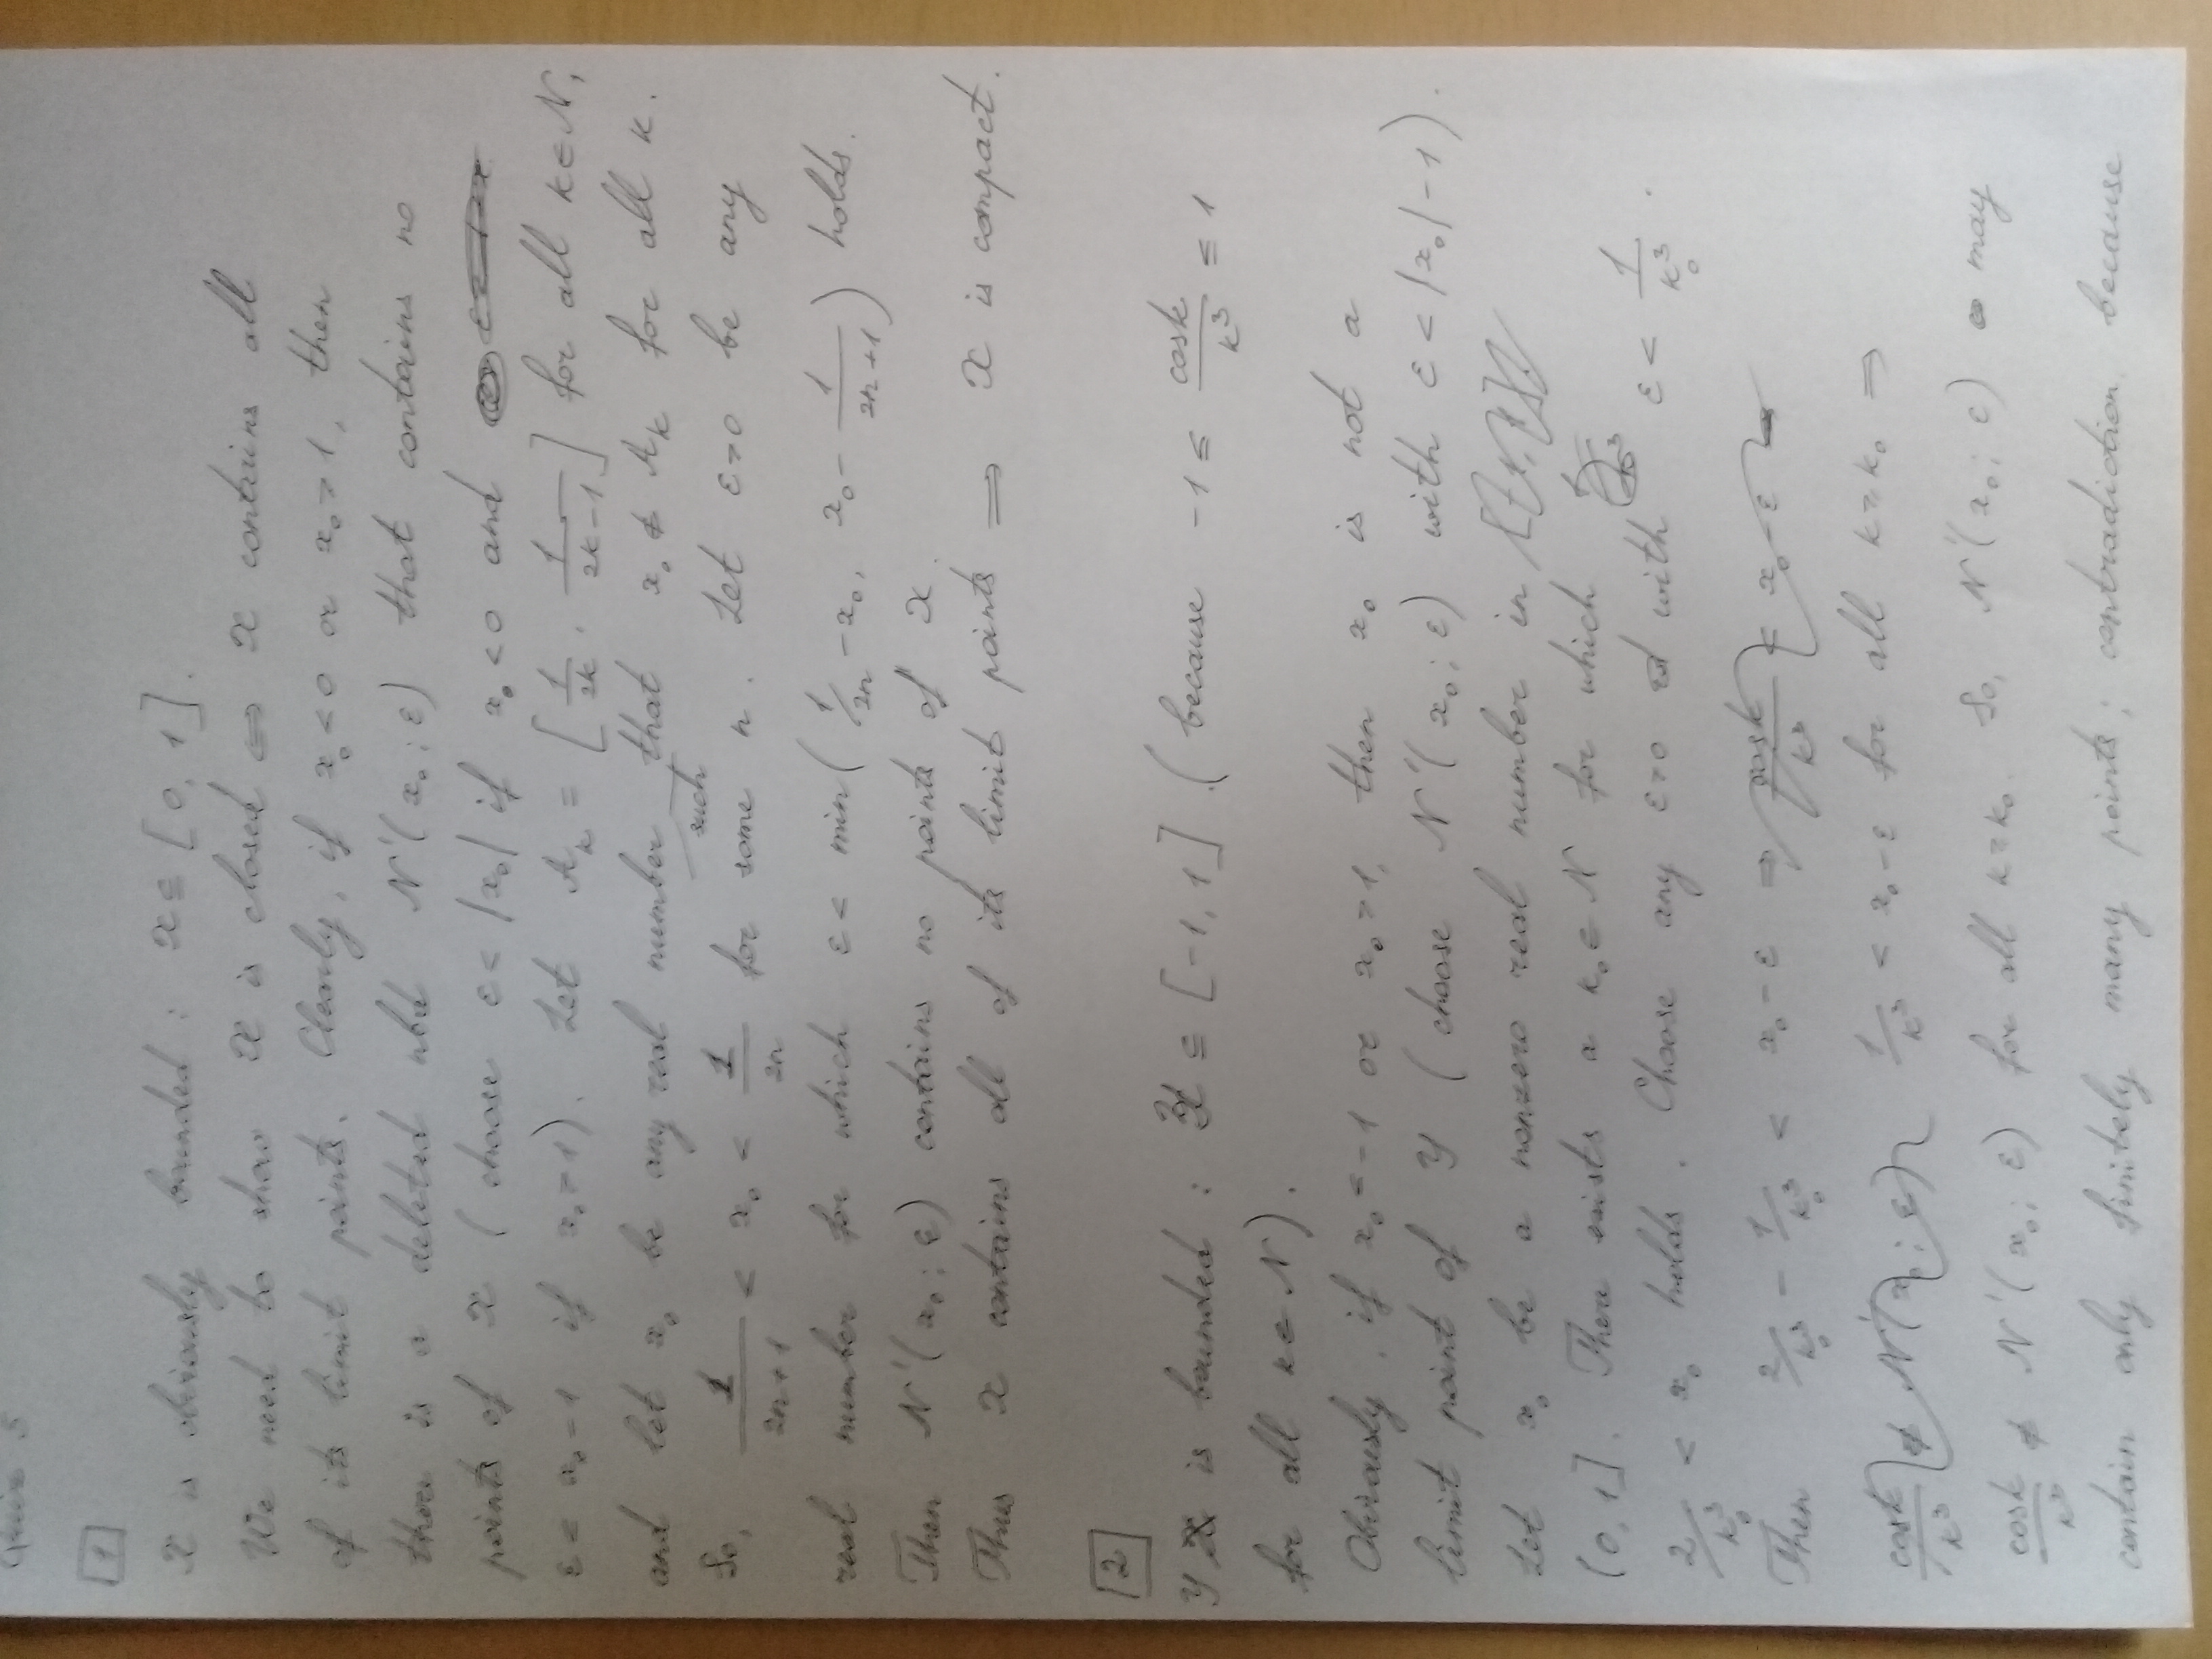 Quiz 5
1
X is obviously bounded : X ⊆ [0, 1].
We need to show X is closed ⇔ X contains all
of its limit points. Clearly, if x₀ < 0 or x₀ > 1, then
there is a deleted nbd N'(x₀; ε) that contains no
points of X ( choose ε < |x₀| if x₀ < 0 and
ε < x₀ - 1 if x₀ > 1). Let Aₖ = [1/2k, 1/(2k-1)] for all k ∈ N,
and let x₀ be any real number such that x₀ ∉ Aₖ for all k.
So, 1/(2n+1) < x₀ < 1/2n for some n. Let ε > 0 be any
real number for which ε < min(1/2n - x₀, x₀ - 1/(2n+1)) holds.
Then N'(x₀; ε) contains no points of X.
Thus X contains all of its limit points ⇒ X is compact.
2
Y is bounded : Y ⊆ [-1, 1] (because -1 ≤ cosk/k³ ≤ 1
for all k ∈ N).
Obviously, if x₀ < -1 or x₀ > 1, then x₀ is not a
limit point of Y ( choose N'(x₀; ε) with ε < |x₀| - 1).
Let x₀ be a nonzero real number in
(0, 1]. There exists a k₀ ∈ N for which
2/k₀³ < x₀ holds. Choose any ε > 0 with ε < 1/k₀³.
Then 2/k₀³ - 1/k₀³ < x₀ - ε
1/k³ < x₀ - ε for all k ≥ k₀ ⇒
cosk/k³ ∉ N'(x₀; ε) for all k ≥ k₀. So, N'(x₀; ε) may
contain only finitely many points; contradiction, because